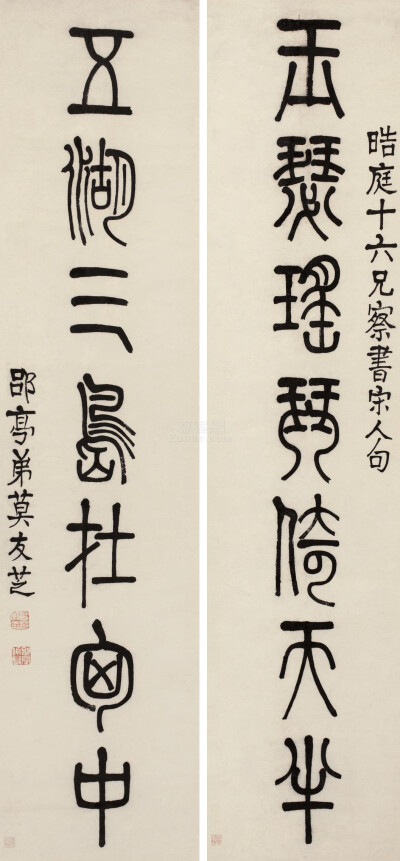 皓庭十六兄察書宋人句
玉瑟瑤琴倚天半
五湖三島在匈中
郘亭弟莫友芝